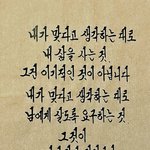 내가 맞다고 생각하는 대로
내 삶을 사는 것
그것은 이기적인 것이 아닙니다
내가 맞다고 생각하는 대로
남에게 살도록 요구하는 것
그것이